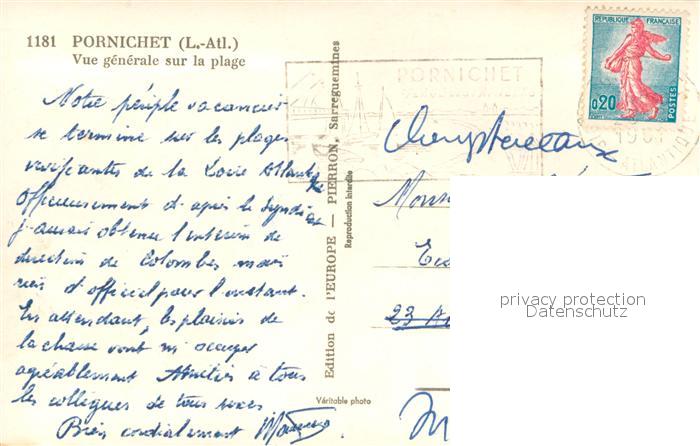 1181 PORNICHET (L.-Atl.)
Vue générale sur la plage
Notre périple vacancier
se termine sur les plages
vivifiantes de la Loire Atlantique
Officieusement d'après le Syndicat
j'aurais obtenu l'intérim de
direction de Colombes mais
rien d'officiel pour l'instant.
En attendant, les plaisirs de
la chasse vont m'occuper
agréablement Amitiés à tous
les collègues de tous sexes
Bien cordialement
Edition de l'EUROPE — PIERRON, Sarreguemines
Reproduction interdite
Véritable photo
PORNICHET
REPUBLIQUE FRANÇAISE
0,20
POSTES
ATLANTIQUE
23
privacy protection
Datenschutz